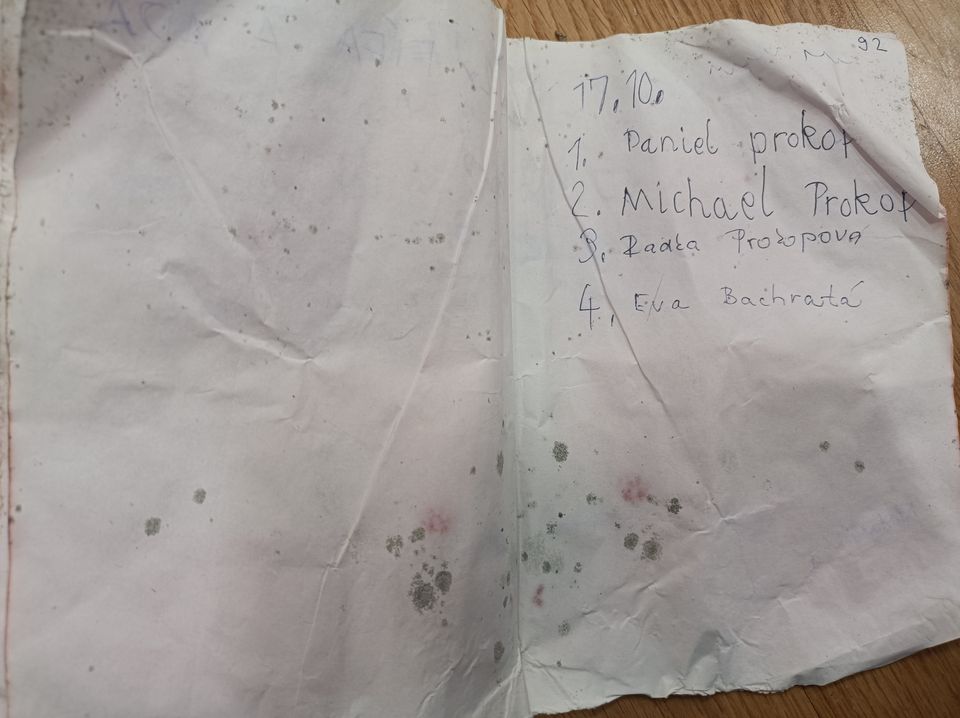 92
17.10.
1. Daniel prokop
2. Michael Prokop
3. Radka Prokopová
4. Eva Bachratá